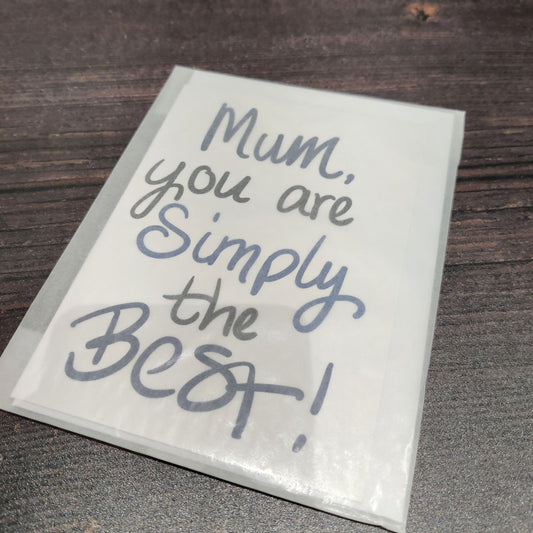 Mum,
you are
Simply
the
Best!